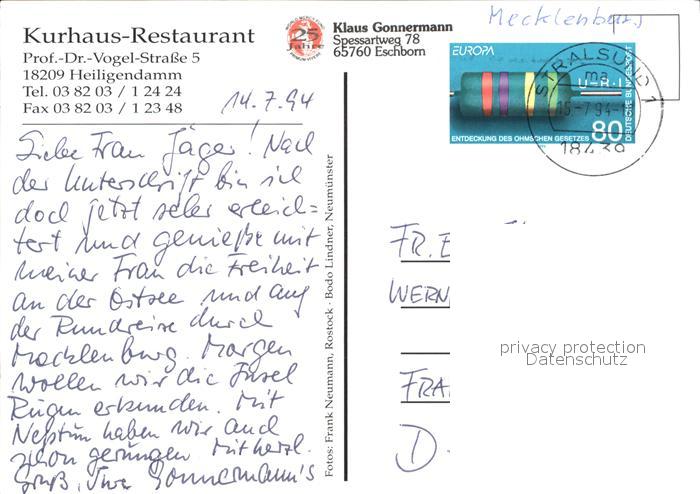 Kurhaus-Restaurant
Prof.-Dr.-Vogel-Straße 5
18209 Heiligendamm
Tel. 03 82 03 / 1 24 24
Fax 03 82 03 / 1 23 48
14.7.94
Liebe Frau Jäger! Nach
der Unterschrift bin ich
doch jetzt sehr erleich=
tert und genieße mit
meiner Frau die Freiheit
an der Ostsee und auf
der Rundreise durch
Mecklenburg. Morgen
wollen wir die Insel
Rügen erkunden. Mit
Neptun haben wir auch
schon gerungen Mit herzl.
Gruß, Ihre Gonnermann's
Fotos: Frank Neumann, Rostock · Bodo Lindner, Neumünster
25
Jahre
Klaus Gonnermann
Spessartweg 78
65760 Eschborn
Mecklenburg
EUROPA
U=R·I
ENTDECKUNG DES OHMSCHEN GESETZES
80
DEUTSCHE BUNDESPOST
STRALSUND 1
ma
15.-7.94-
18439
FR. E
WERN
FRA
D
privacy protection
Datenschutz